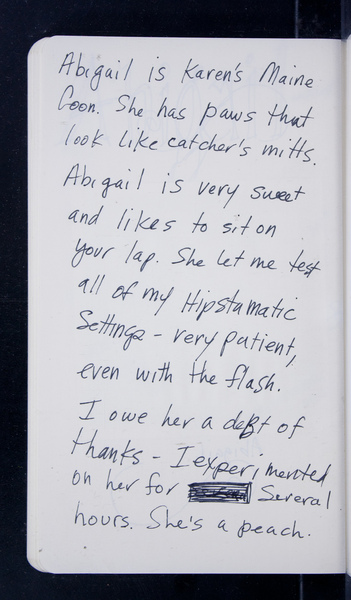 Abigail is Karen's Maine
Coon. She has paws that
look like catcher's mitts.
Abigail is very sweet
and likes to sit on
your lap. She let me test
all of my Hipstamatic
Settings - very patient,
even with the flash.
I owe her a debt of
thanks - I experimented
on her for Several
hours. She's a peach.